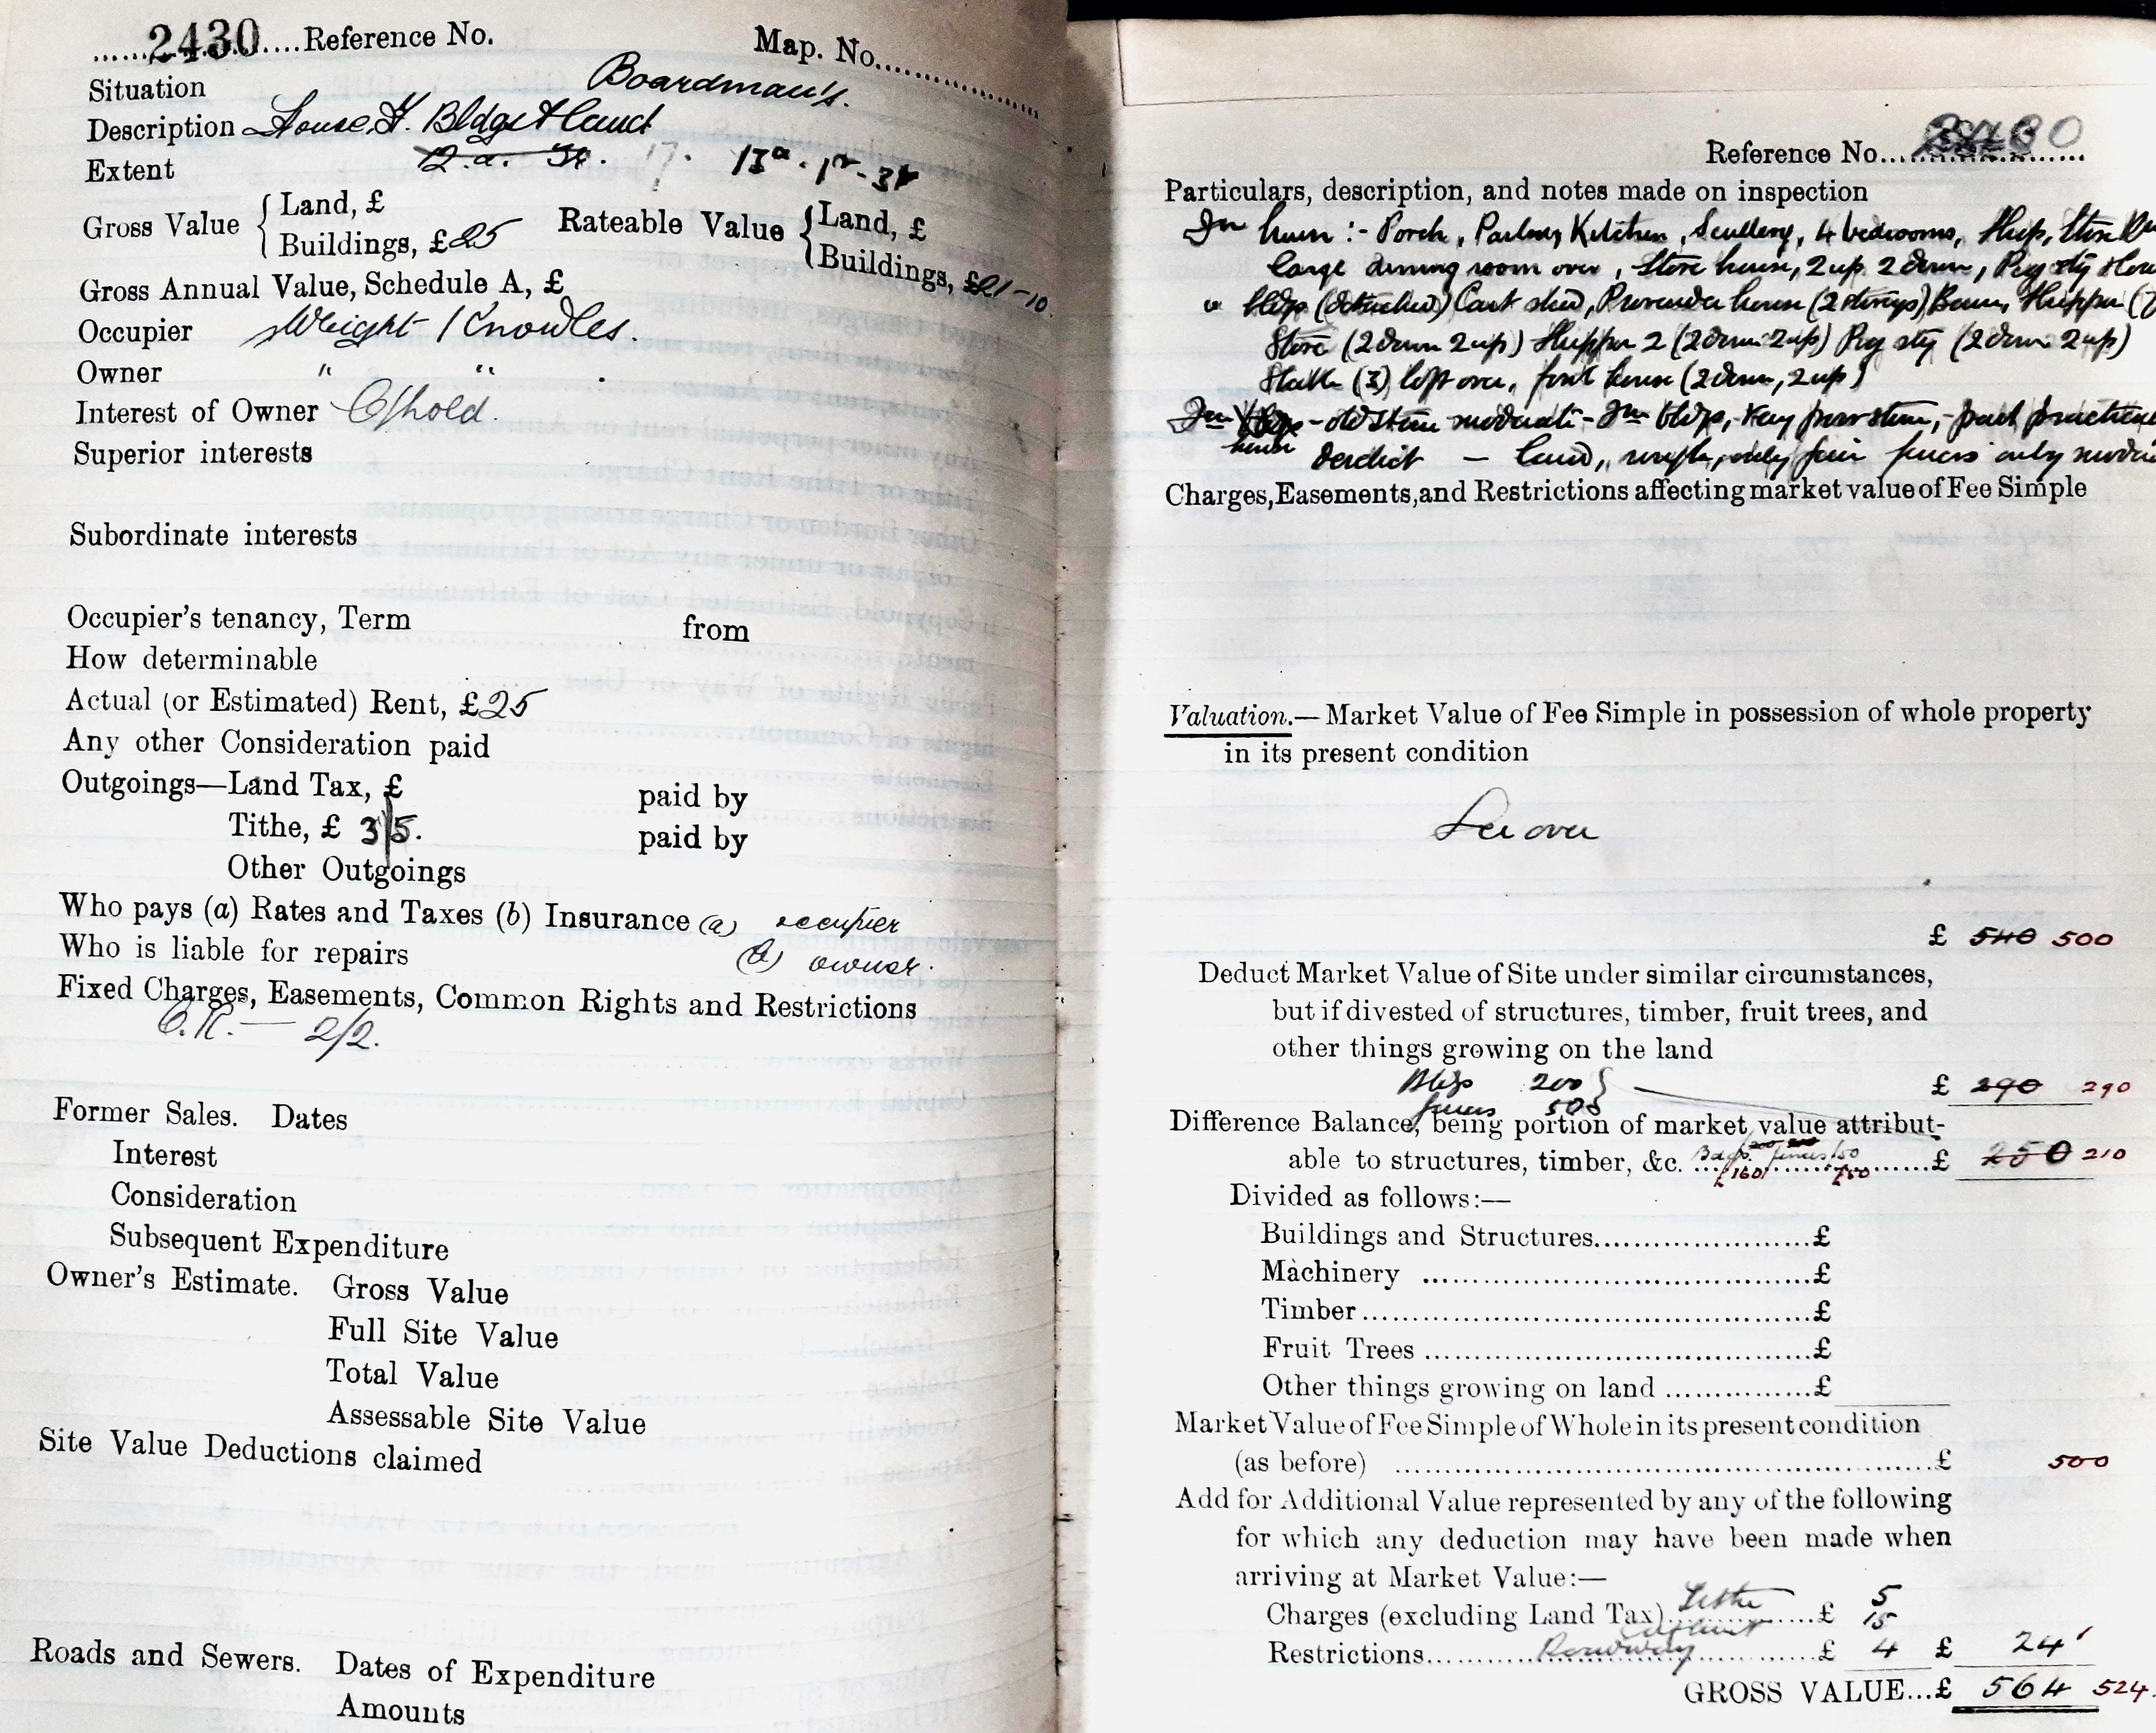 2430 Reference No. Map. No.
Situation Boardman's.
Description House, F. Bldgs & land
Extent 12.a. 3r. 17. 13a. 1r - 3p
Gross Value { Land, £
Buildings, £25
Rateable Value { Land, £
Buildings, £21-10.
Gross Annual Value, Schedule A, £
Occupier Wright Knowles.
Owner " " .
Interest of Owner C/hold.
Superior interests
Subordinate interests
Occupier's tenancy, Term from
How determinable
Actual (or Estimated) Rent, £25
Any other Consideration paid
Outgoings—Land Tax, £ paid by
Tithe, £ 3/5. paid by
Other Outgoings
Who pays (a) Rates and Taxes (b) Insurance (a) occupier
Who is liable for repairs (b) owner.
Fixed Charges, Easements, Common Rights and Restrictions
C.R. — 2/2.
Former Sales. Dates
Interest
Consideration
Subsequent Expenditure
Owner's Estimate. Gross Value
Full Site Value
Total Value
Assessable Site Value
Site Value Deductions claimed
Roads and Sewers. Dates of Expenditure
Amounts
Reference No. 2430
Particulars, description, and notes made on inspection
Fm house :- Porch, Parlour, Kitchen, Scullery, 4 bedrooms, Shipp, Store
large dining room over, Store house, 2 up 2 down, Pig sty
bldgs (detached) Cart shed, Provender house (2 storeys) Barn, Shippon
Store (2 down 2 up) Shippon 2 (2 down 2 up) Pig sty (2 down 2 up)
Stable (3) loft over, fowl house (2 down, 2 up)
Fm house - old stone moderate - Fm bldgs, very poor stone, - part
derelict — land, rough, only fair fences only
Charges, Easements, and Restrictions affecting market value of Fee Simple
Valuation.—Market Value of Fee Simple in possession of whole property
in its present condition
See over
£ 540 500
Deduct Market Value of Site under similar circumstances,
but if divested of structures, timber, fruit trees, and
other things growing on the land
Bldgs 200 } £ 290 290
fences 50
Difference Balance, being portion of market value attribut-
able to structures, timber, &c. Bdgs. 200 fences 50 £ 250 210
£160 £50
Divided as follows:—
Buildings and Structures £
Machinery £
Timber £
Fruit Trees £
Other things growing on land £
Market Value of Fee Simple of Whole in its present condition
(as before) £ 500
Add for Additional Value represented by any of the following
for which any deduction may have been made when
arriving at Market Value:—
Charges (excluding Land Tax) Tithe £ 5
15
Restrictions Roadway £ 4 £ 24
GROSS VALUE...£ 564 524